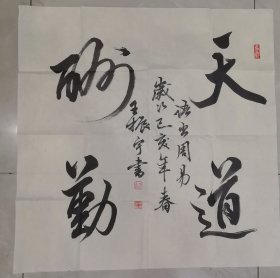 天道
酬勤
语出周易
岁次己亥年春
王振宇书